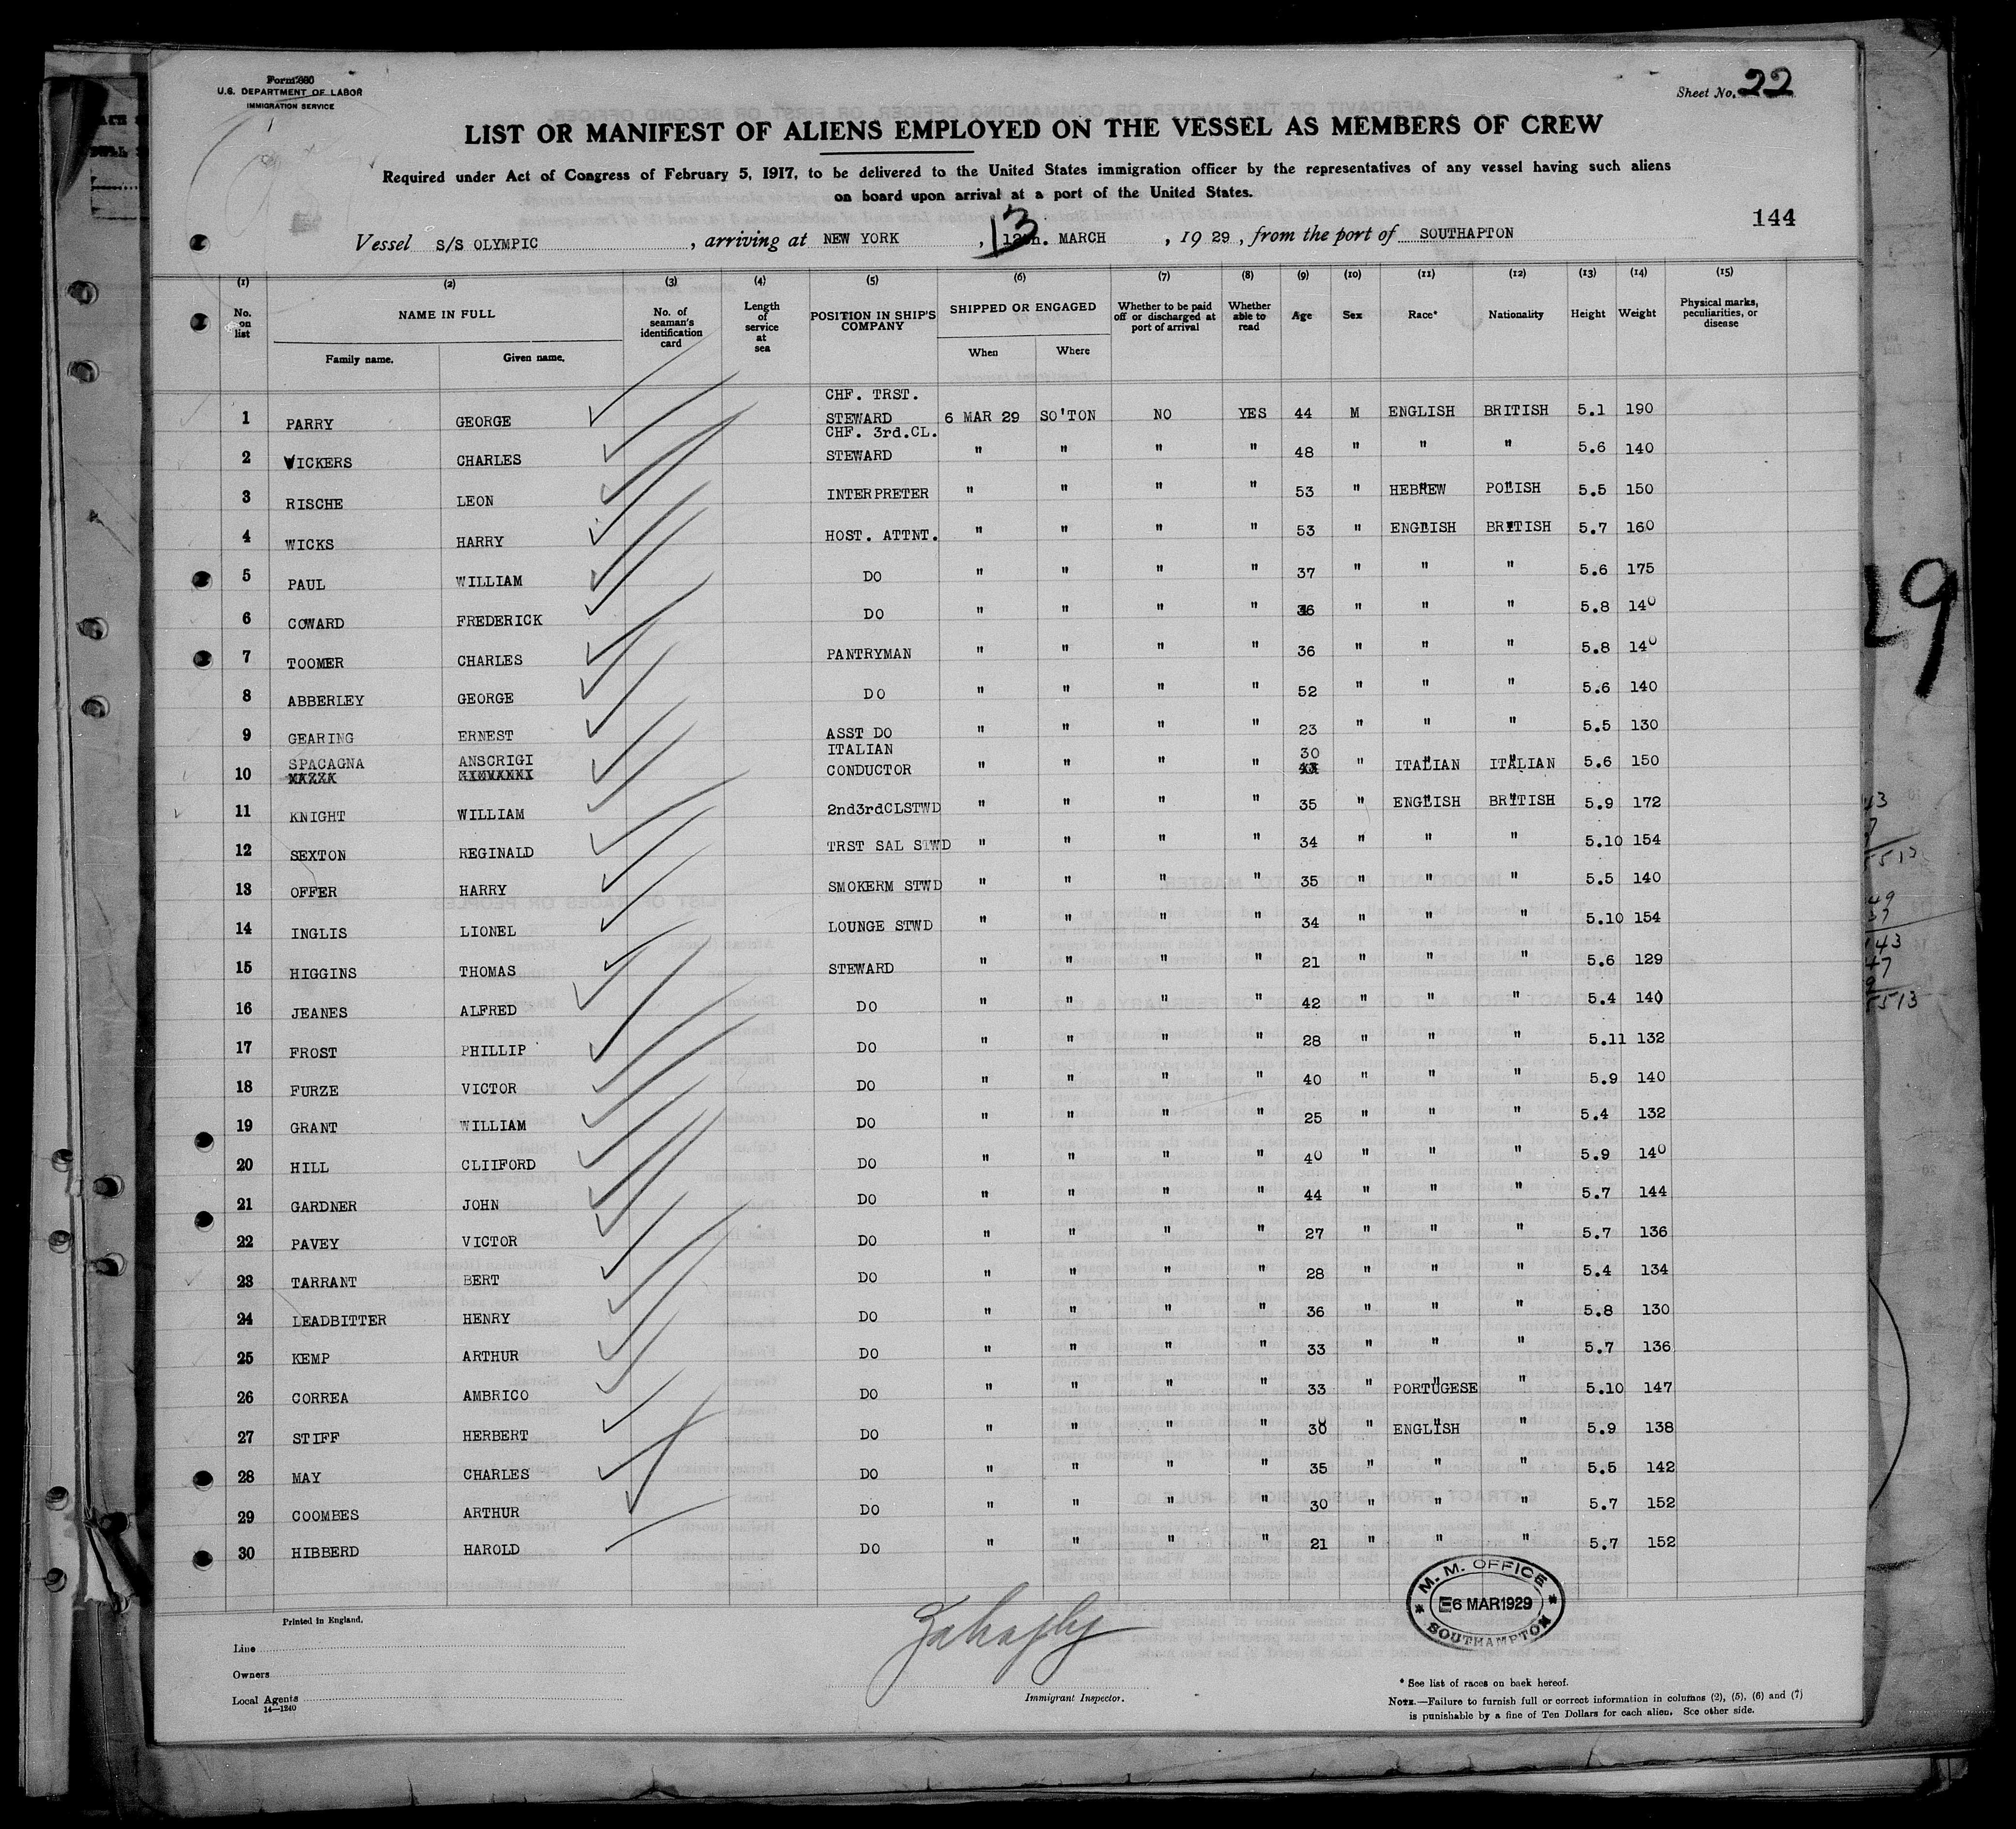 Form 680
U.S. DEPARTMENT OF LABOR
IMMIGRATION SERVICE
Sheet No. 22
LIST OR MANIFEST OF ALIENS EMPLOYED ON THE VESSEL AS MEMBERS OF CREW
Required under Act of Congress of February 5, 1917, to be delivered to the United States immigration officer by the representatives of any vessel having such aliens
on board upon arrival at a port of the United States.
144
Vessel S/S OLYMPIC, arriving at NEW YORK, 13 12th. MARCH, 19 29, from the port of SOUTHAPTON
(1) (2) (3) (4) (5) (6) (7) (8) (9) (10) (11) (12) (13) (14) (15)
No. on list NAME IN FULL Family name. Given name. No. of seaman's identification card Length of service at sea POSITION IN SHIP'S COMPANY SHIPPED OR ENGAGED When Where Whether to be paid off or discharged at port of arrival Whether able to read Age Sex Race* Nationality Height Weight Physical marks, peculiarities, or disease
1 PARRY GEORGE CHF. TRST. STEWARD 6 MAR 29 SO'TON NO YES 44 M ENGLISH BRITISH 5.1 190
2 VICKERS CHARLES CHF. 3rd.CL. STEWARD " " " " 48 " " " 5.6 140
3 RISCHE LEON INTERPRETER " " " " 53 " HEBREW POLISH 5.5 150
4 WICKS HARRY HOST. ATTNT. " " " " 53 " ENGLISH BRITISH 5.7 160
5 PAUL WILLIAM DO " " " " 37 " " " 5.6 175
6 COWARD FREDERICK DO " " " " 36 " " " 5.8 140
7 TOOMER CHARLES PANTRYMAN " " " " 36 " " " 5.8 140
8 ABBERLEY GEORGE DO " " " " 52 " " " 5.6 140
9 GEARING ERNEST ASST DO " " " " 23 " " " 5.5 130
10 SPACAGNA ANSCRIGI ITALIAN CONDUCTOR " " " " 30 " ITALIAN ITALIAN 5.6 150
11 KNIGHT WILLIAM 2nd3rdCLSTWD " " " " 35 " ENGLISH BRITISH 5.9 172
12 SEXTON REGINALD TRST SAL STWD " " " " 34 " " " 5.10 154
13 OFFER HARRY SMOKERM STWD " " " " 35 " " " 5.5 140
14 INGLIS LIONEL LOUNGE STWD " " " " 34 " " " 5.10 154
15 HIGGINS THOMAS STEWARD " " " " 21 " " " 5.6 129
16 JEANES ALFRED DO " " " " 42 " " " 5.4 140
17 FROST PHILLIP DO " " " " 28 " " " 5.11 132
18 FURZE VICTOR DO " " " " 40 " " " 5.9 140
19 GRANT WILLIAM DO " " " " 25 " " " 5.4 132
20 HILL CLIIFORD DO " " " " 40 " " " 5.9 140
21 GARDNER JOHN DO " " " " 44 " " " 5.7 144
22 PAVEY VICTOR DO " " " " 27 " " " 5.7 136
23 TARRANT BERT DO " " " " 28 " " " 5.4 134
24 LEADBITTER HENRY DO " " " " 36 " " " 5.8 130
25 KEMP ARTHUR DO " " " " 33 " " " 5.7 136
26 CORREA AMBRICO DO " " " " 33 " PORTUGESE " 5.10 147
27 STIFF HERBERT DO " " " " 30 " ENGLISH " 5.9 138
28 MAY CHARLES DO " " " " 35 " " " 5.5 142
29 COOMBES ARTHUR DO " " " " 30 " " " 5.7 152
30 HIBBERD HAROLD DO " " " " 21 " " " 5.7 152
M. M. OFFICE
6 MAR 1929
SOUTHAMPTON
Printed in England.
Line
Owners
Local Agents
14—1240
Immigrant Inspector.
* See list of races on back hereof.
NOTE.—Failure to furnish full or correct information in columns (2), (5), (6) and (7)
is punishable by a fine of Ten Dollars for each alien. See other side.